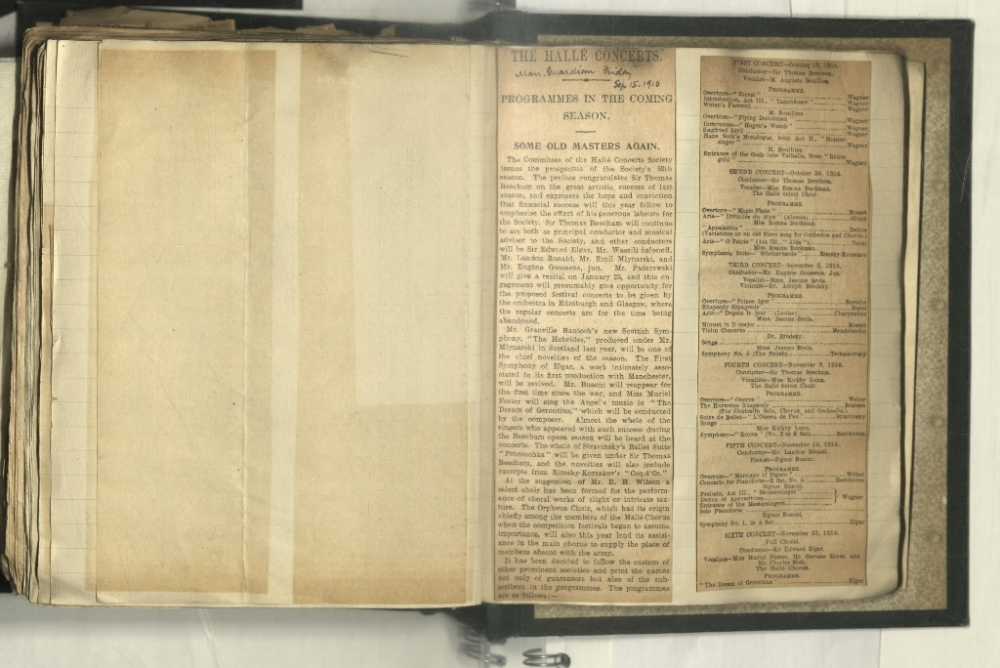 THE HALLÉ CONCERTS.
Man. Guardian Friday
Sep 15. 1916
PROGRAMMES IN THE COMING
SEASON.
SOME OLD MASTERS AGAIN.
The Committee of the Hallé Concerts Society
issues the prospectus of the Society's
season. The preface congratulates Sir Thomas
Beecham on the great artistic success of last
season, and expresses the hope and conviction
that financial success will this year follow to
emphasise the effect of his generous labours for
the Society. Sir Thomas Beecham will continue
to act both as principal conductor and musical
adviser to the Society, and other conductors
will be Sir Edward Elgar, Mr. Wassili Safonoff,
Mr. Landon Ronald, Mr. Emil Mlynarski, and
Mr. Eugène Goossens, jun. Mr. Paderewski
will give a recital on January 25, and this en-
gagement will presumably give opportunity for
the proposed festival concerts to be given by
the orchestra in Edinburgh and Glasgow, where
the regular concerts are for the time being
abandoned.
Mr. Granville Bantock's new Scottish Sym-
phony, "The Hebrides," produced under Mr.
Mlynarski in Scotland last year, will be one of
the chief novelties of the season. The First
Symphony of Elgar, a work intimately asso-
ciated in its first production with Manchester,
will be revived. Mr. Busoni will reappear for
the first time since the war, and Miss Muriel
Foster will sing the Angel's music in "The
Dream of Gerontius," which will be conducted
by the composer. Almost the whole of the
singers who appeared with such success during
the Beecham opera season will be heard at the
concerts. The whole of Stravinsky's Ballet Suite
"Petrouchka" will be given under Sir Thomas
Beecham, and the novelties will also include
excerpts from Rimsky-Korsakov's "Coq d'Or."
At the suggestion of Mr. R. H. Wilson a
select choir has been formed for the perform-
ance of choral works of slight or intricate tex-
ture. The Orpheus Choir, which had its origin
chiefly among the members of the Hallé Chorus
when the competition festivals began to assume
importance, will also this year lend its assist-
ance in the main chorus to supply the place of
members absent with the army.
It has been decided to follow the custom of
other prominent societies and print the names
not only of guarantors but also of the sub-
scribers in the programmes. The programmes
are as follows:—
FIRST CONCERT—October 19, 1916.
Conductor—Sir Thomas Beecham.
Vocalist—M. Auguste Bouilliez.
PROGRAMME.
Overture—"Rienzi" Wagner
Introduction, Act III., "Tannhäuser" Wagner
Wotan's Farewell Wagner
M. Bouilliez.
Overture—"Flying Dutchman" Wagner
Intermezzo—"Hagen's Watch" Wagner
Siegfried Idyll Wagner
Hans Sachs's Monologue, from Act II., "Meister-
singer" Wagner
M. Bouilliez.
Entrance of the Gods into Valhalla, from "Rhine-
gold" Wagner
SECOND CONCERT—October 26, 1916.
Conductor—Sir Thomas Beecham.
Vocalist—Miss Rosina Buckman.
The Hallé Select Choir.
PROGRAMME.
Overture—"Magic Flute" Mozart
Aria—"Divinités du Styx" (Alceste) Gluck
Miss Rosina Buckman.
"Appalachia" Delius
(Variations on an old Slave song for Orchestra and Chorus.)
Aria—"O Patria" (Act III., "Aida") Verdi
Miss Rosina Buckman.
Symphonic Suite—"Scheherazade" Rimsky-Korsakov
THIRD CONCERT—November 2, 1916.
Conductor—Mr. Eugène Goossens, Jun.
Vocalist—Mme. Jeanne Brola.
Violinist—Dr. Adolph Brodsky.
PROGRAMME.
Overture—"Prince Igor" Borodin
Rhapsody Espagnole Ravel
Aria—"Depuis le jour" (Louise) Charpentier
Mme. Jeanne Brola.
Minuet in D major Mozart
Violin Concerto Mendelssohn
Dr. Brodsky.
Songs
Mme. Jeanne Brola.
Symphony No. 3 (The Polish) Tschaikovsky
FOURTH CONCERT—November 9, 1916.
Conductor—Sir Thomas Beecham.
Vocalist—Miss Kirkby Lunn.
The Hallé Select Choir.
PROGRAMME.
Overture—"Oberon" Weber
The Harzreise Rhapsody Brahms
(For Contralto Solo, Chorus, and Orchestra.)
Suite de Ballet—"L'Oiseau de Feu" Stravinsky
Songs
Miss Kirkby Lunn.
Symphony—"Eroica" (No. 3 in E flat) Beethoven
FIFTH CONCERT—November 16, 1916.
Conductor—Mr. Landon Ronald.
Pianist—Signor Busoni.
PROGRAMME.
Overture—"Marriage of Figaro"
Concerto for Pianoforte—E flat, No. 5 Beethoven
Signor Busoni.
Prelude, Act III., "Meistersinger"
Dance of Apprentices
Entrance of the Mastersingers
Wagner
Solo Pianoforte
Signor Busoni.
Symphony No. 1, in A flat Elgar
SIXTH CONCERT—November 23, 1916.
Full Choral.
Conductor—Sir Edward Elgar.
Vocalists—Miss Muriel Foster, Mr. Gervase Elwes, and
Mr. Charles Mott.
The Hallé Chorus.
PROGRAMME.
"The Dream of Gerontius" Elgar